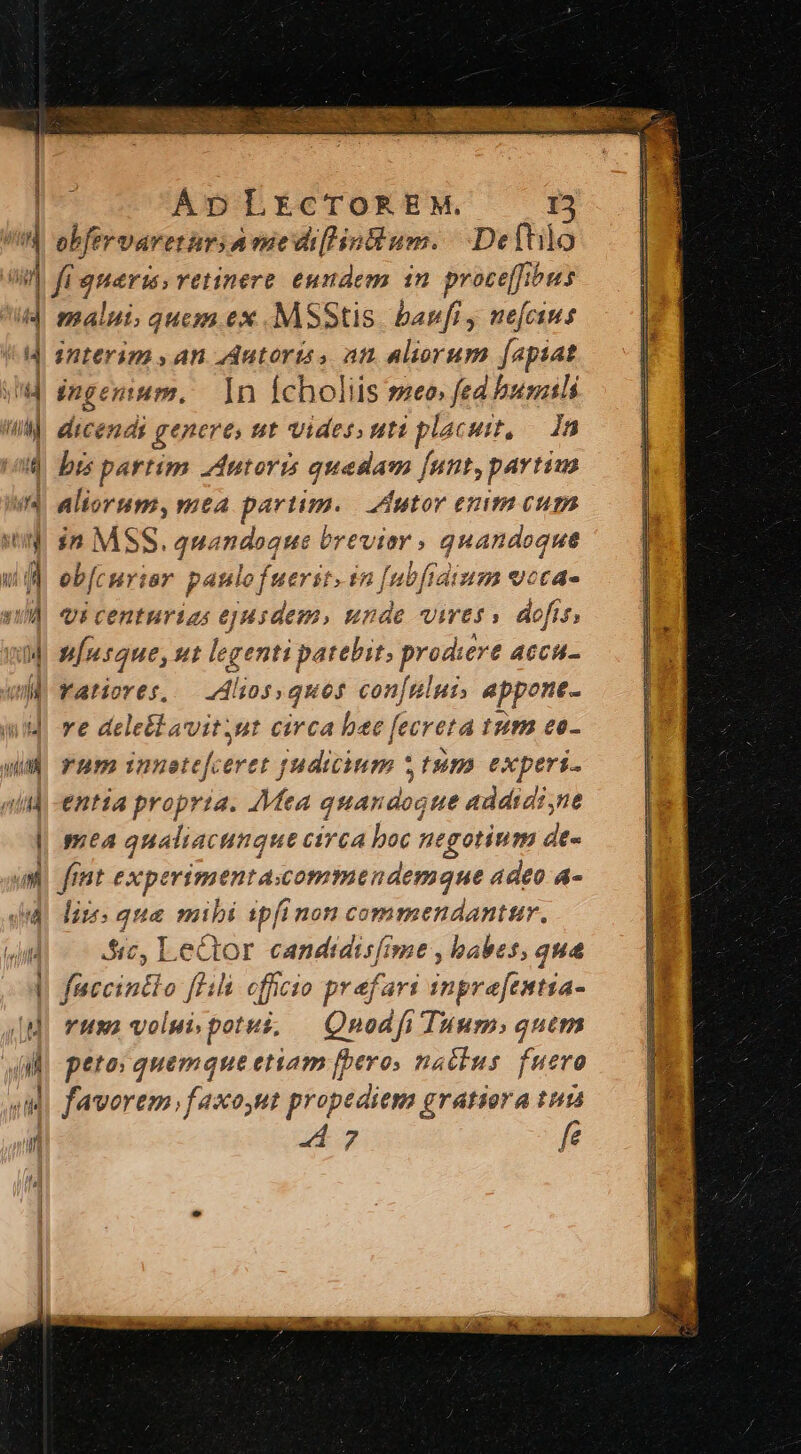 AD LECTOREM. 13
obſervaretur, à me diſtinctum. De ſtilo
ſi quæris, retinere eundem in proceſſibus
malui, quem ex MSStis. hauſi, neſcius
interim, an Autoris, an aliorum ſapiat
ingenium. In ſcholiis meo, ſed humili
dicendi genere, ut vides, uti placuit. In
his partim Autoris quædam ſunt, partim
aliorum, mea partim. Autor enim cum
in MSS. quandoque brevior, quandoque
obſcurior paulo fuerit, in ſubſidium voca-
vi centurias ejusdem, unde vires, doſis,
uſusque, ut legenti patebit, prodiere accu-
ratiores. Alios, quos conſului, appone-
re delectavit, ut circa hæc ſecreta tum eo-
rum innoteſceret judicium, tùm experi-
entia propria. Mea quandoque addidi, ne
mea qualiacunque circa hoc negotium de-
ſint experimenta, commendemque adeo a-
liis, quæ mihi ipſi non commendantur.
Sic, Lector candidisſime, habes, quæ
ſuccincto ſtili officio præfari inpræſentia-
rum volui, potui. Quod ſi Tuum, quem
peto, quemque etiam ſpero, nactus fuero
favorem, faxo, ut propediem gratiora tuis
A 7 ſe